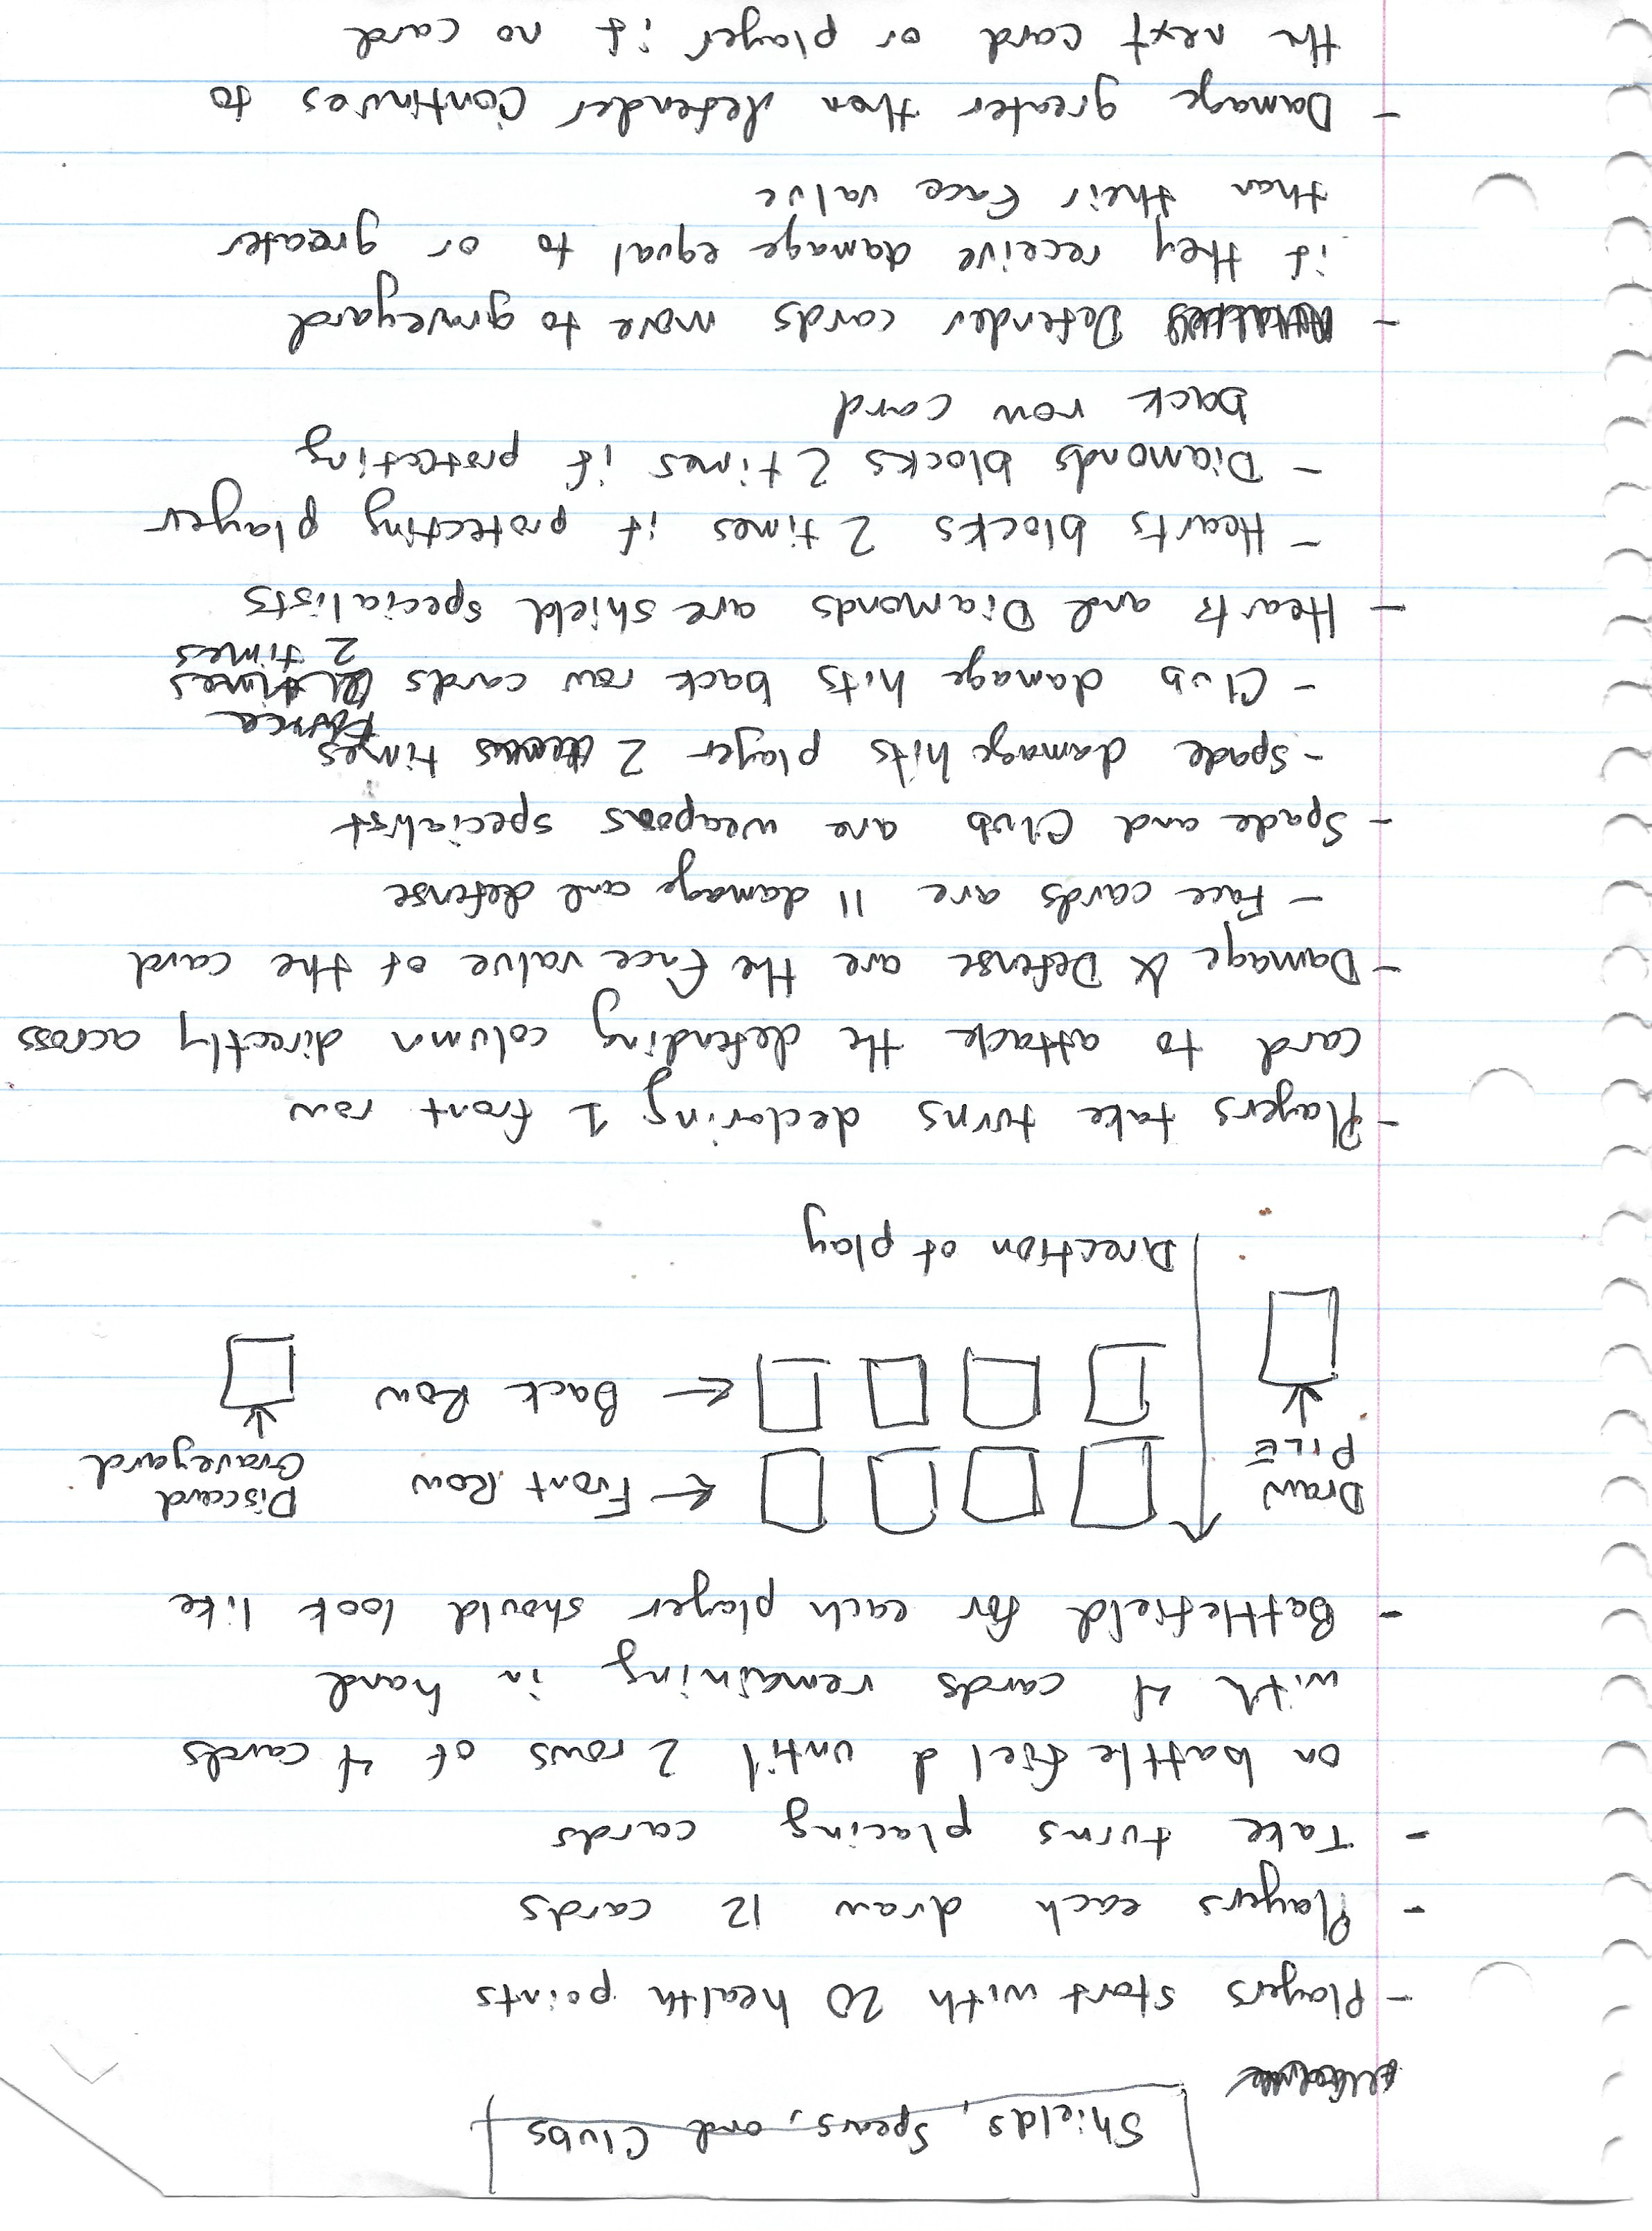 Shields, Spears, and Clubs
- Players start with 20 health points
- Players each draw 12 cards
- Take turns placing cards
on battlefield until 2 rows of 4 cards
with 4 cards remaining in hand
- Battlefield for each player should look like
Draw PILE
← Front Row
Discard Graveyard
← Back Row
Direction of play
- Players take turns declaring 1 front row
card to attack the defending column directly across
- Damage & Defense are the face value of the card
- Face cards are 11 damage and defense
- Spade and Club are weapons specialist
- Spade damage hits player 2 times
- Club damage hits back row cards
2 times
- Hearts and Diamonds are shield specialists
- Hearts blocks 2 times if protecting player
- Diamonds blocks 2 times if protecting
back row card
- Defender cards move to graveyard
if they receive damage equal to or greater
than their face value
- Damage greater than defender continues to
the next card or player if no card